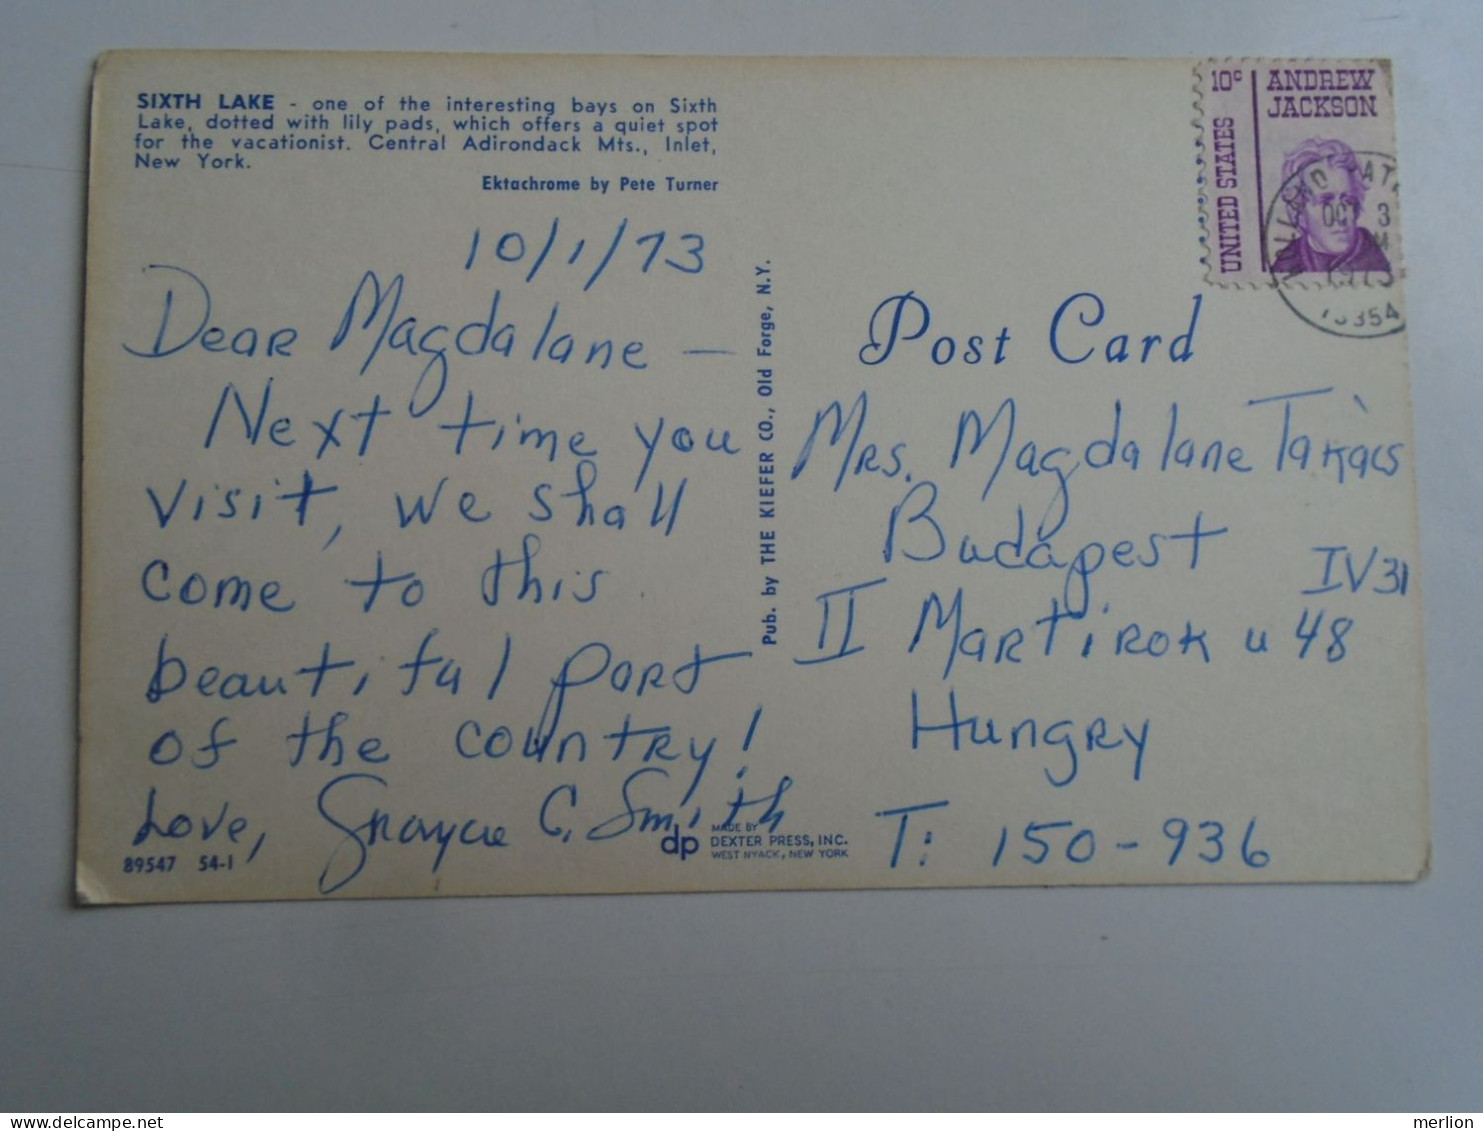 SIXTH LAKE - one of the interesting bays on Sixth
Lake, dotted with lily pads, which offers a quiet spot
for the vacationist. Central Adirondack Mts., Inlet,
New York.
Ektachrome by Pete Turner
10/1/73
Dear Magdalane -
Next time you
visit, we shall
come to this
beautiful part
of the country!
Love, C. Smith
89547 54-1
Pub. by THE KIEFER CO., Old Forge, N.Y.
dp
MADE BY
DEXTER PRESS, INC.
WEST NYACK, NEW YORK
10c ANDREW
JACKSON
UNITED STATES
OCT 3
Post Card
Mrs. Magdalane Takàcs
Budapest
IV31
II Martirok u 48
Hungry
T: 150-936
merlion